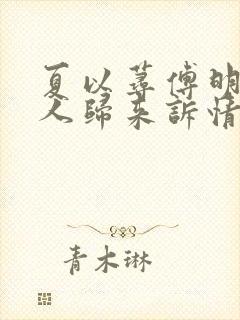 夏以蕁傅明
人歸來訴情
青木琳